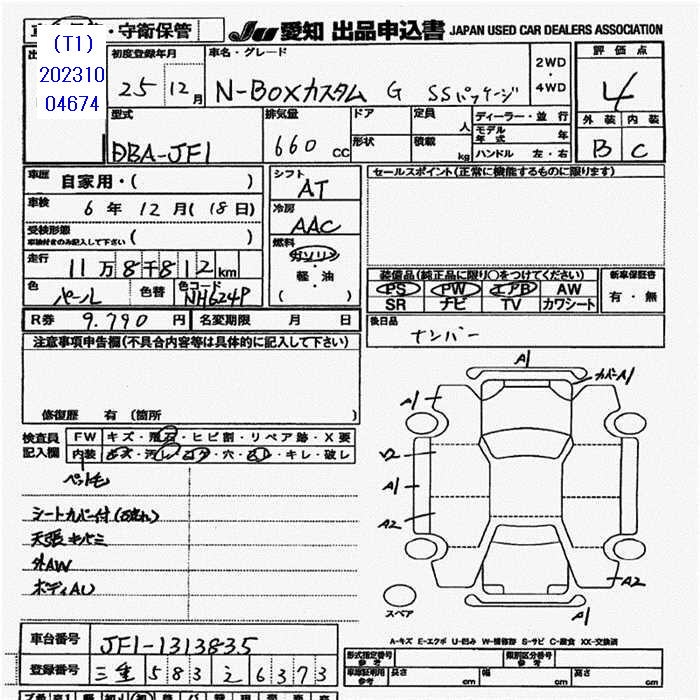 ・守衛保管
JU 愛知 出品申込書 JAPAN USED CAR DEALERS ASSOCIATION
(T1)
202310
04674
初度登録年月
25 12月
車名・グレード
N-BOXカスタム G SSパッケージ
2WD
・
4WD
評価点
4
外装 内装
B C
型式
DBA-JF1
排気量
660 CC
ドア
形状
定員 人
積載 kg
ディーラー・並行
モデル年式 年
ハンドル 左・右
車歴 自家用・( )
車検 6年 12月(18日)
受検形態
車検付きのみ記入して下さい ( )
走行 11万8千812km
色 パール 色替 色コード NH624P
シフト
AT
冷房
AAC
燃料
ガソリン
・
軽・油
( )
セールスポイント(正常に機能するものに限ります)
装備品(純正品に限り○をつけてください)
PS PW エアB AW
SR ナビ TV カワシート
新車保証書
有・無
R券 9.790 円 名変期限 月 日
後日品
ナンバー
注意事項申告欄(不具合内容等は具体的に記入して下さい)
修復歴 有 (箇所 )
検査員
記入欄
FW キズ・飛石・ヒビ割・リペア跡・X要
内装 キズ・汚れ・コゲ・穴・スレ・キレ・破レ
ペット毛
シートカバー付(内汚れ)
天張キバミ
外AW
ボディAU
A1
カバーA1
A1
A1
A2
A2
A1
スペア
A-キズ E-エクボ U-凹み W-補修跡 S-サビ C-腐食 XX-交換済
車台番号 JF1-1313835
登録番号 三重 583 と 6373
型式指定番号
参考
類別区分番号
参考
車庫証明用
参考
長さ cm 幅 cm 高さ cm